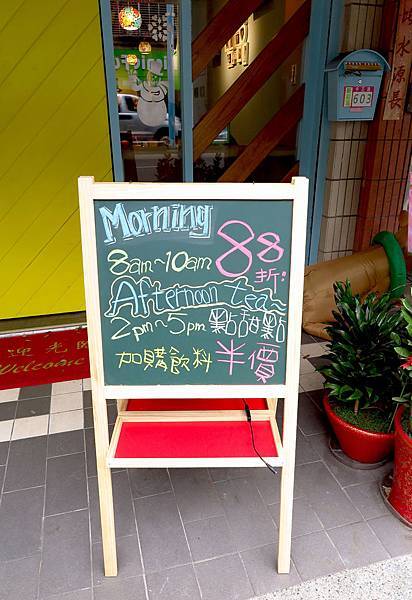 Morning
8am~10am 88折!
Afternoon tea~
2pm~5pm 點甜點
加購飲料半價
603
水源長
迎光臨
Welcome